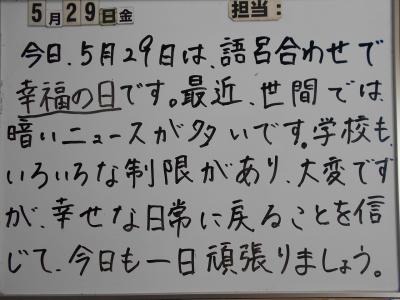 5月29日金 担当：
今日、5月29日は、語呂合わせで
幸福の日です。最近、世間では、
暗いニュースが多いです。学校も、
いろいろな制限があり、大変です
が、幸せな日常に戻ることを信
じて、今日も一日頑張りましょう。